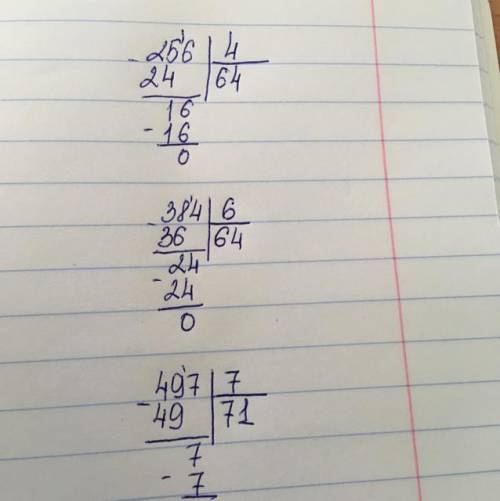 - 256 | 4
24 | 64
16
- 16
0
- 384 | 6
36 | 64
24
- 24
0
- 497 | 7
49 | 71
7
- 7